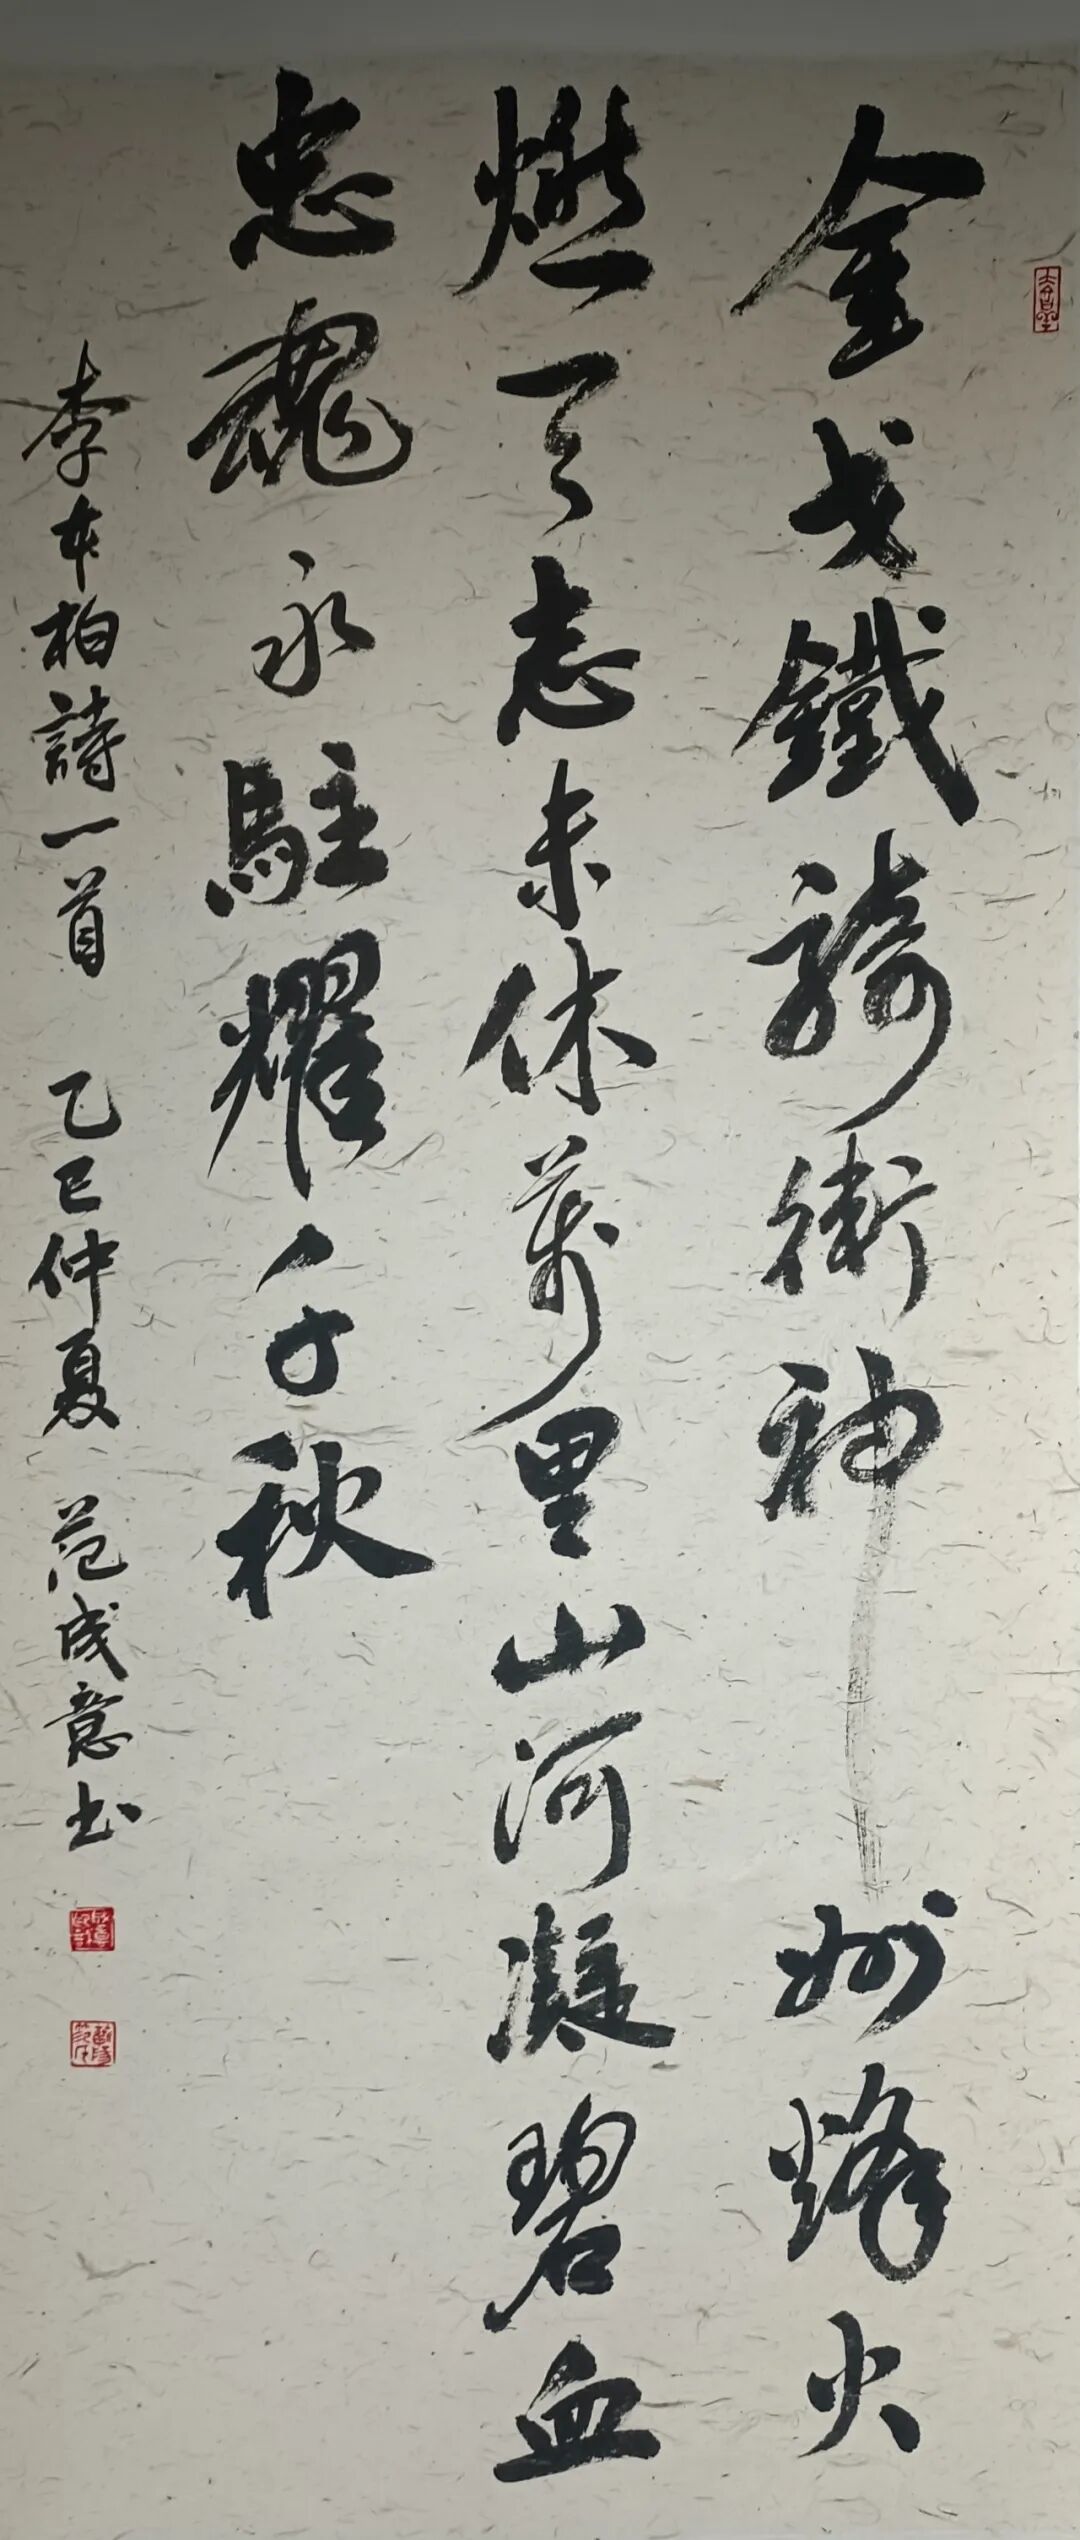 金戈鐵騎衛神州烽火
燃了志未休萬里山河凝碧血
忠魂永駐耀千秋
李本柏詩一首 乙巳仲夏 范成意书